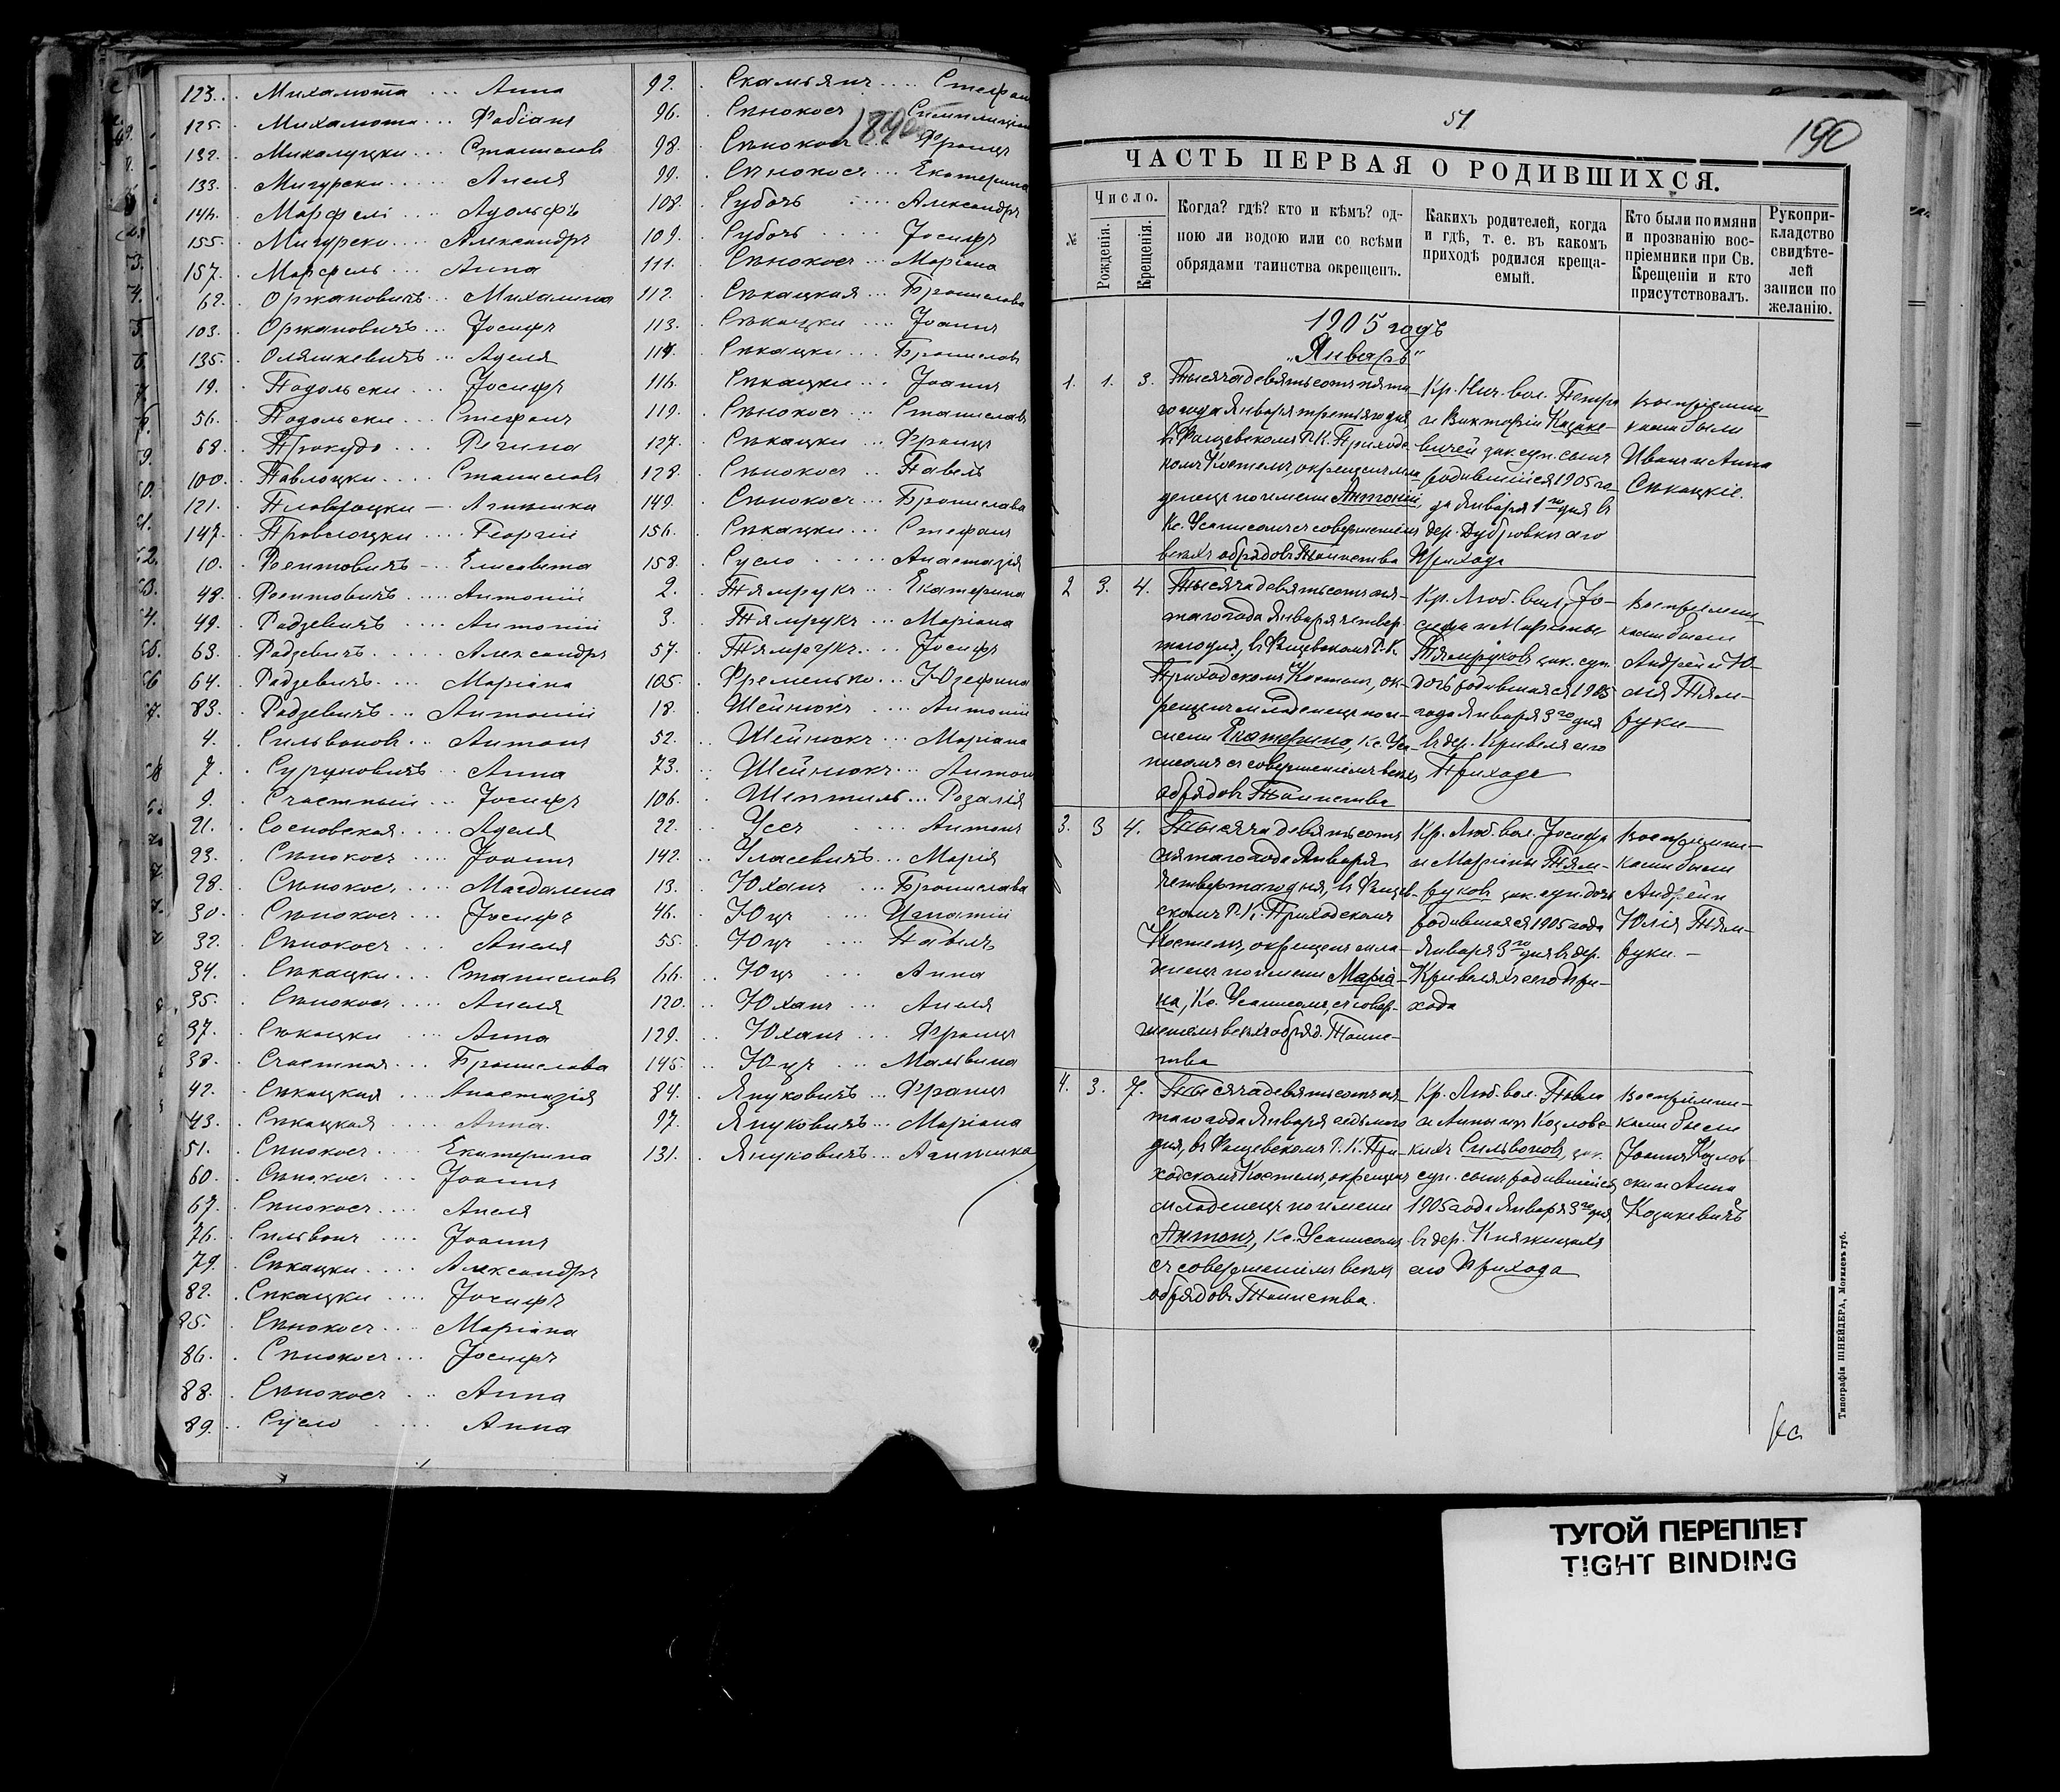 123. Михамота ... Анна
125. Михамота ... Фабіанъ
132. Михалуцки ... Станиславъ
133. Мигурски ..... Анеля
146. Марфель .... Адольфъ
155. Мигурски .... Александръ
157. Марфель ... Анна
62. Оржановичъ ... Михалина
103. Оржановичъ ... Іосифъ
135. Оляшкевичъ ... Аделя
19. Подольски ... Іосифъ
56. Подольски ... Стефанъ
68. Регина
100. Павлоцки .... Станиславъ
121. Агнешка
147. Георгій
10. Рентовичъ ... Елисавета
48. Рентовичъ ..... Антоній
49. Радзевичъ .... Антоній
63. Радзевичъ ..... Александръ
64. Радзевичъ .... Маріана
83. Радзевичъ ... Антоній
4. Сильвоновъ ... Антонъ
7. Суруновичъ ... Анна
9. Счастный ... Іосифъ
21. Сосновская .... Аделя
23. Сѣнокосъ .... Іоаннъ
28. Сѣнокосъ .... Магдалена
30. Сѣнокосъ ... Іосифъ
32. Сѣнокосъ .... Анеля
34. Сѣкацки ... Станиславъ
35. Сѣнокосъ .... Анеля
37. Сѣкацки .... Анна
38. Счастная ... Бронислава
42. Сѣкацкая ... Анастазія
43. Сѣкацкая .... Анна.
51. Сѣнокосъ .... Екатерина
60. Сѣнокосъ ... Іоаннъ
67. Сѣнокосъ .... Анеля
76. Сильвонъ .... Іоаннъ
79. Сѣкацки .... Александръ
82. Сѣкацки .... Іосифъ
85. Сѣнокосъ ... Маріана
86. Сѣнокосъ ... Іосифъ
88. Сѣнокосъ ... Анна
89. Сусло .... Анна
92. Скамьянъ .... Стефан
96. Сѣнокосъ
189
98. Сѣнокосъ ... Францъ
99. Сѣнокосъ ... Екатерина
108. Субочъ .... Александръ
109. Субочъ ..... Іосифъ
111. Сѣнокосъ ... Маріана
112. Сѣкацкая ... Бронислава
113. Сѣкацки .... Іоаннъ
114. Сѣкацки ... Брониславъ
116. Сѣкацки ... Іоаннъ
119. Сѣнокосъ ... Станиславъ
127. Сѣкацки ... Францъ
128. Сѣнокосъ ... Павелъ
149. Сѣнокосъ ... Бронислава
156. Сѣкацки ... Стефанъ
158. Сусло ..... Анастазія
2. Тямрукъ ... Екатерина
3. Тямрукъ ... Маріана
57. Тямрукъ .... Іосифъ
105. Фременько ... Юзефина
18. Шейнюкъ .... Антоній
52. Шейнюкъ ... Маріана
73. Шейнюкъ ... Антон
106. Шептиль ... Розалія
22. Усъ .... Антонъ
142. Уласевичъ ... Марія
13. Юханъ ... Бронислава
46. Юцъ .... Игнатій
55. Юцъ .... Павелъ
66. Юцъ .... Анна
120. Юханъ ... Анеля
129. Юханъ ... Францъ
145. Юцъ ... Мальвина
84. Януковичъ ... Францъ
97. Януковичъ ... Маріана
131. Януковичъ ... Агнешка
51
190
ЧАСТЬ ПЕРВАЯ О РОДИВШИХСЯ.
№
Число.
Рожденія.
Крещенія.
Когда? гдѣ? кто и кѣмъ? од-
ною ли водою или со всѣми
обрядами таинства окрещенъ.
Какихъ родителей, когда
и гдѣ, т. е. въ какомъ
приходѣ родился креща-
емый.
Кто были по имяни
и прозванію вос-
пріемники при Св.
Крещеніи и кто
присутствовалъ.
Рукопри-
кладство
свидѣте-
лей
записи по
желанію.
1905 годъ
„Январь“
1. 1. 3.
Тысяча девятьсотъ пята-
го года Января третьяго дня,
въ Фащевскомъ Р. К. Приход-
комъ Костелѣ, окрещенъ мла-
денецъ по имени Антоній,
Кс. Усанисомъ съ совершеніемъ
всѣхъ обрядовъ Таинства
Кр. Нич. вол. Петра
и Викторіи Казаке-
вичей зак. суп. сынъ
родившійся 1905 го-
да Января 1го дня въ
дер. Дубровки его
Прихода
Воспріемни-
ками были
Иванъ и Анна
Сѣкацкіе.
2 3. 4.
Тысяча девятьсотъ пя-
таго года Января четвер-
таго дня, въ Фащевскомъ Р. К.
Приходскомъ Костелѣ, ок-
рещенъ младенецъ по и-
мени Екатерина, Кс. Уса-
нисомъ съ совершеніемъ всѣхъ
обрядовъ Таинства
Кр. Люб. вол. Іо-
сифа и Маріаны
Тямруковъ зак. суп.
дочь родившаяся 1905
года Января 3го дня
въ дер. Кривеля его
Прихода
Воспріемни-
ками были
Андрей и Ю-
лія Тям-
руки
3. 3 4.
Тысяча девятьсотъ
пятаго года Января
четвертаго дня, въ Фащев-
скомъ Р. К. Приходскомъ
Костелѣ, окрещенъ мла-
денецъ по имени Маріа-
на, Кс. Усанисомъ, съ совер-
шеніемъ всѣхъ обряд. Таин-
ства
Кр. Люб. вол. Іосифа
и Маріаны Тям-
руковъ зак. суп. дочь
родившаяся 1905 года
Января 3го дня въ дер.
Кривеляхъ его При-
хода
Воспріемни-
ками были
Андрей и
Юлія Тям-
руки. –
4. 3. 7.
Тысяча девятьсотъ пя-
таго года Января седьмого
дня, въ Фащевскомъ Р. К. При-
ходскомъ Костелѣ, окрещенъ
младенецъ по имени
Антонъ, Кс. Усанисомъ
съ совершеніемъ всѣхъ
обрядовъ Таинства.
Кр. Люб. вол. Павла
и Анны изъ Козловс-
кихъ Сильвоновъ, зак.
суп. сынъ родившійся
1905 года Января 3го дня
въ дер. Княжицахъ
его Прихода
Воспріемни-
ками были
Іоаннъ Козлов-
ски и Анна
Козакевичъ
Типографія ШНЕЙДЕРА, Могилевъ губ.
ТУГОЙ ПЕРЕПЛЕТ
TIGHT BINDING